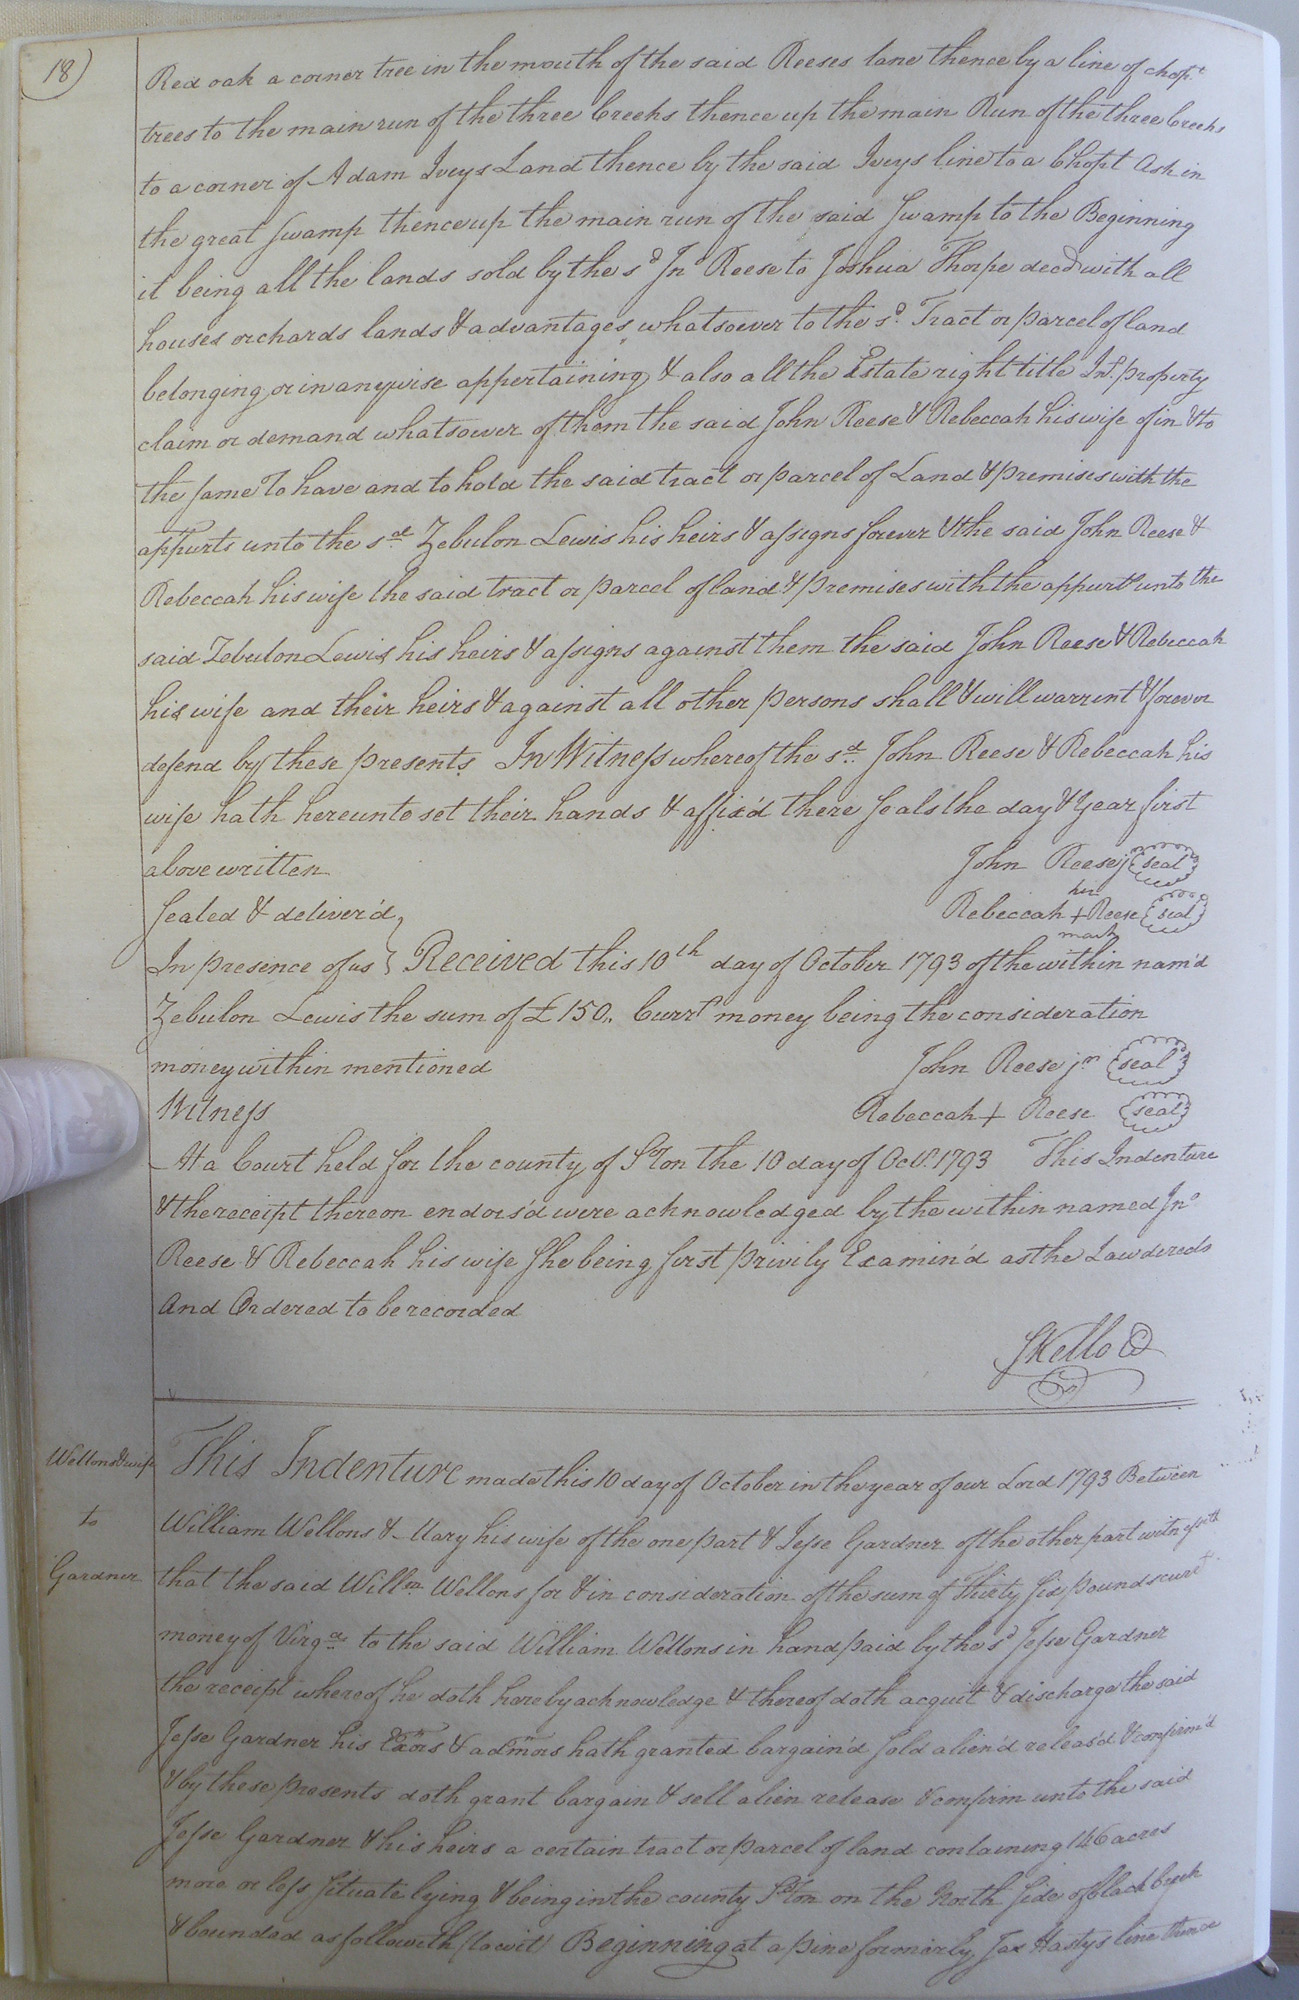 18)
Red oak a corner tree in the mouth of the said Reeses lane thence by a line of chopt
trees to the main run of the three Creeks thence up the main Run of the three Creeks
to a corner of Adam Iveys Land thence by the said Iveys line to a Chopt Ash in
the great swamp thence up the main run of the said swamp to the Beginning
it being all the lands sold by the sd Jno Reese to Joshua Thorpe decd with all
houses orchards lands & advantages whatsoever to the sd Tract or parcel of land
belonging or in anywise appertaining & also all the Estate right title Int. property
claim or demand whatsoever of them the said John Reese & Rebeccah his wife of in & to
the same To have and to hold the said tract or parcel of Land & premises with the
appurts unto the sd Zebulon Lewis his heirs & assigns forever & the said John Reese &
Rebeccah his wife the said tract or parcel of land & premises with the appurts unto the
said Zebulon Lewis his heirs & assigns against them the said John Reese & Rebeccah
his wife and their heirs & against all other persons shall & will warrent & forever
defend by these presents In Witness whereof the sd John Reese & Rebeccah his
wife hath hereunto set their hands & affix'd there seals the day & Year first
above written John Reese jr seal
Sealed & deliver'd her
Rebeccah + Reese seal
mark
In presence of us } Received this 10th day of October 1793 of the within nam'd
Zebulon Lewis the sum of £150.. Currt money being the consideration
money within mentioned John Reese jr seal
Witness Rebeccah + Reese seal
At a Court held for the county of S'ton the 10 day of Oct. 1793 This Indenture
& the receipt thereon endors'd were acknowledged by the within named Jno
Reese & Rebeccah his wife she being first privily Examin'd as the Law dereds
And Ordered to be recorded
SKello C
Wellons & wife
to
Gardner
This Indenture made this 10 day of October in the year of our Lord 1793 Between
William Wellons & Mary his wife of the one part & Jesse Gardner of the other part witnesseth
that the said Willm Wellons for & in consideration of the sum of Thirty six pounds curt
money of Virga to the said William Wellons in hand paid by the sd Jesse Gardner
the receipt whereof he doth hereby acknowledge & thereof doth acquit & discharge the said
Jesse Gardner his Exors & admors hath granted bargain'd sold alien'd releas'd & confirm'd
& by these presents doth grant bargain & sell alien release & confirm unto the said
Jesse Gardner & his heirs a certain tract or parcel of land containing 146 acres
more or less situate lying & being in the county S'ton on the North side of black Creek
& bounded as followith to wit Beginning at a pine formerly Jas Hastys line thence